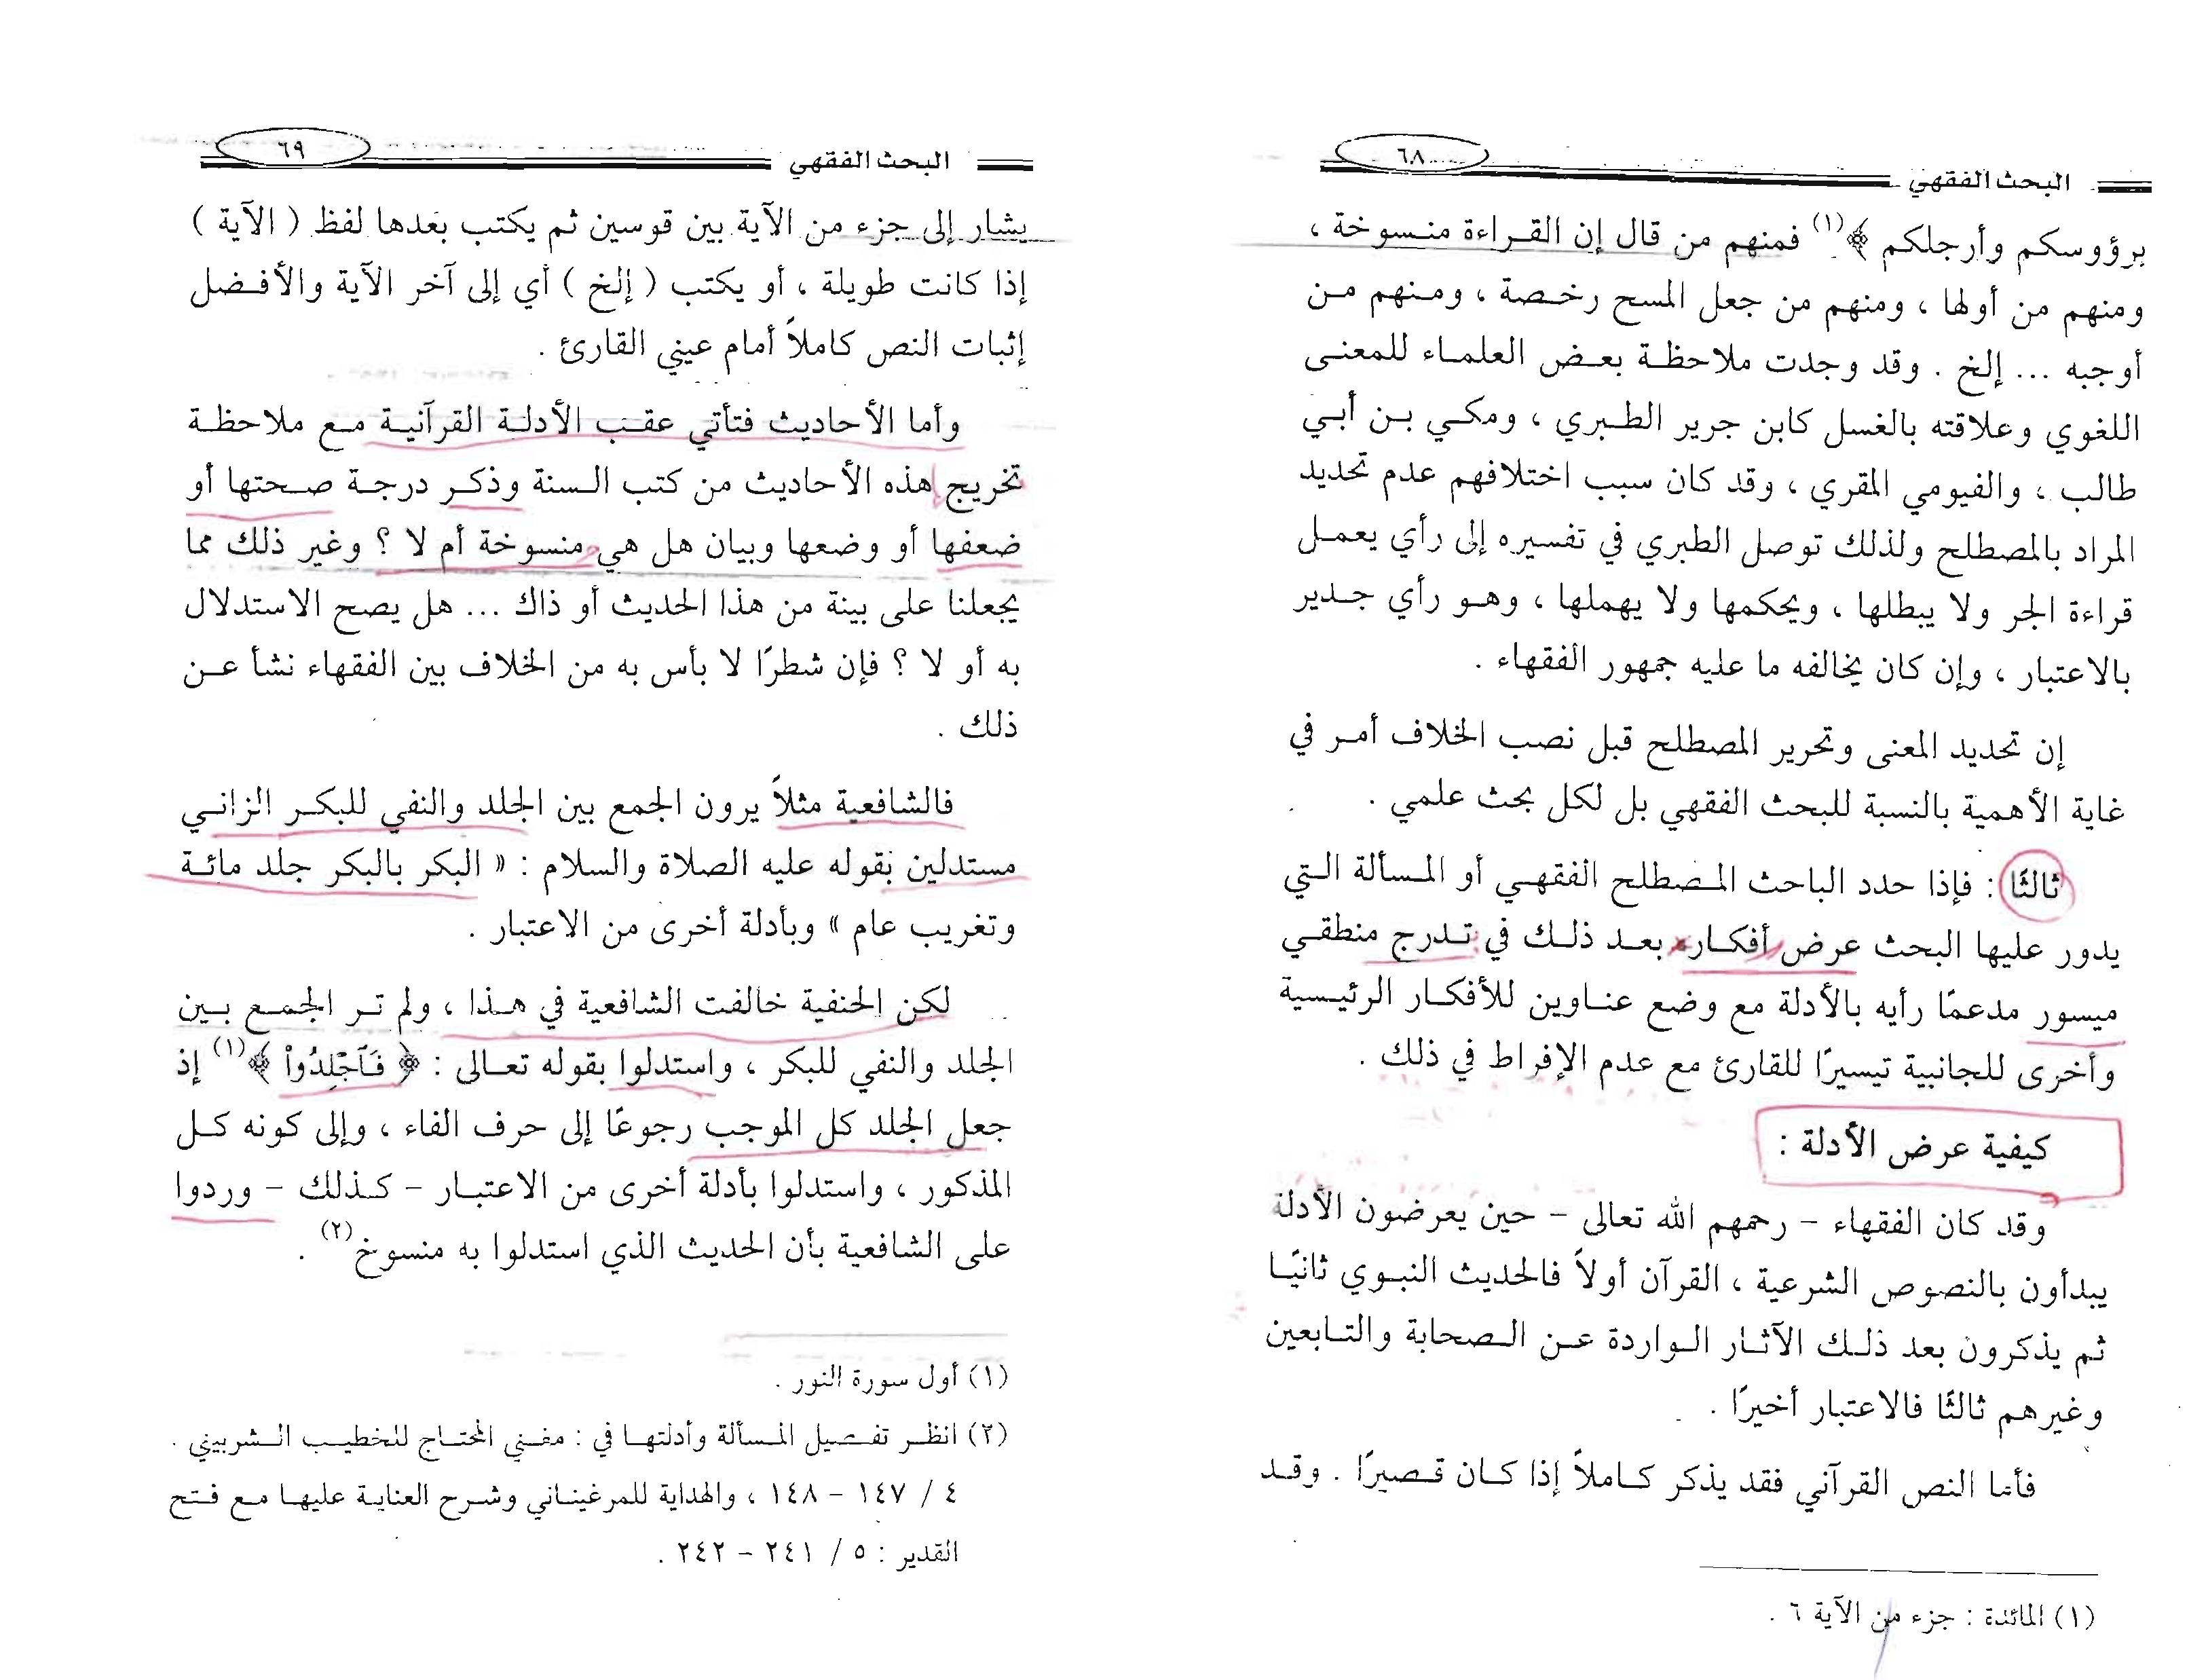 البحث الفقهي ٦٨
برؤوسكم وأرجلكم ﴾(١) فمنهم من قال إن القراءة منسوخة ،
ومنهم من أولها ، ومنهم من جعل المسح رخصة ، ومنهم من
أوجبه ... إلخ . وقد وجدت ملاحظة بعض العلماء للمعنى
اللغوي وعلاقته بالغسل كابن جرير الطبري ، ومكي بن أبي
طالب ، والفيومي المقري ، وقد كان سبب اختلافهم عدم تحديد
المراد بالمصطلح ولذلك توصل الطبري في تفسيره إلى رأي يعمل
قراءة الجر ولا يبطلها ، ويحكمها ولا يهملها ، وهو رأي جدير
بالاعتبار ، وإن كان يخالفه ما عليه جمهور الفقهاء .
إن تحديد المعنى وتحرير المصطلح قبل نصب الخلاف أمر في
غاية الأهمية بالنسبة للبحث الفقهي بل لكل بحث علمي .
ثالثًا : فإذا حدد الباحث المصطلح الفقهي أو المسألة التي
يدور عليها البحث عرض أفكاره بعد ذلك في تدرج منطقي
ميسور مدعمًا رأيه بالأدلة مع وضع عناوين للأفكار الرئيسية
وأخرى للجانبية تيسيرًا للقارئ مع عدم الإفراط في ذلك .
كيفية عرض الأدلة :
وقد كان الفقهاء – رحمهم الله تعالى – حين يعرضون الأدلة
يبدأون بالنصوص الشرعية ، القرآن أولاً فالحديث النبوي ثانيًا
ثم يذكرون بعد ذلك الآثار الواردة عن الصحابة والتابعين
وغيرهم ثالثًا فالاعتبار أخيرًا .
فأما النص القرآني فقد يذكر كاملاً إذا كان قصيرًا . وقد
(١) المائدة : جزء من الآية ٦ .
البحث الفقهي ٦٩
يشار إلى جزء من الآية بين قوسين ثم يكتب بعدها لفظ ( الآية )
إذا كانت طويلة ، أو يكتب ( إلخ ) أي إلى آخر الآية والأفضل
إثبات النص كاملاً أمام عيني القارئ .
وأما الأحاديث فتأتي عقب الأدلة القرآنية مع ملاحظة
تخريج هذه الأحاديث من كتب السنة وذكر درجة صحتها أو
ضعفها أو وضعها وبيان هل هي منسوخة أم لا ؟ وغير ذلك مما
يجعلنا على بينة من هذا الحديث أو ذاك ... هل يصح الاستدلال
به أو لا ؟ فإن شطرًا لا بأس به من الخلاف بين الفقهاء نشأ عن
ذلك .
فالشافعية مثلاً يرون الجمع بين الجلد والنفي للبكر الزاني
مستدلين بقوله عليه الصلاة والسلام : « البكر بالبكر جلد مائة
وتغريب عام » وبأدلة أخرى من الاعتبار .
لكن الحنفية خالفت الشافعية في هذا ، ولم تر الجمع بين
الجلد والنفي للبكر ، واستدلوا بقوله تعالى : ﴿ فَٱجْلِدُواْ ﴾(١) إذ
جعل الجلد كل الموجب رجوعًا إلى حرف الفاء ، وإلى كونه كل
المذكور ، واستدلوا بأدلة أخرى من الاعتبار – كذلك – وردوا
على الشافعية بأن الحديث الذي استدلوا به منسوخ(٢) .
(١) أول سورة النور .
(٢) انظر تفصيل المسألة وأدلتها في : مغني المحتاج للخطيب الشربيني .
٤ / ١٤٧ – ١٤٨ ، والهداية للمرغيناني وشرح العناية عليها مع فتح
القدير : ٥ / ٢٤١ – ٢٤٢ .